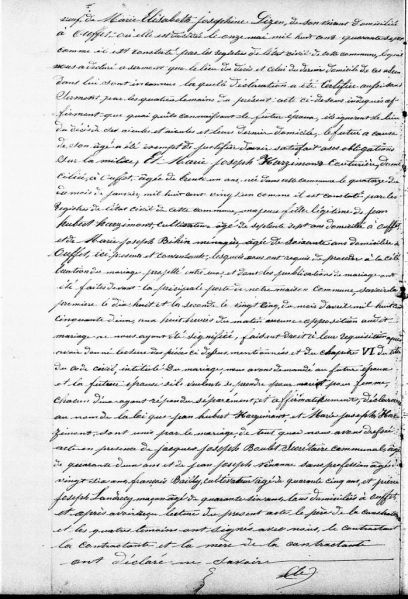 veuf de Marie Elisabeth Josephine Lizen, de son vivant domiciliée
à Ouffet, où elle est décédée le onze mai mil huit cent quarante
comme il est constaté par les registres de l'état civil de cette commune, lequel
nous a déclaré à serment que le lieu du décès et celui du dernier domicile de ses aïeux
dans lui sont inconnus laquelle déclaration a été certifiée aussi sous
serment par les quatre témoins du présent acte ci-dessous indiqués
affirment que quoi qu'ils connaissent le futur époux, ils ignorent le lieu
du décès des aïeuls et aïeules et leur dernier domicile, le futur à cause
de son âge a été exempté de justifier d'avoir satisfait aux obligations
sur la milice, Et Marie Joseph Harzimont Couturière, domi-
ciliée à Ouffet, âgée de trente un ans, née dans cette commune le quatorze
du mois de janvier, mil huit cent vingt ainsi comme il est constaté par les
registres de l'état civil de cette commune, majeure fille légitime de Jean
hubert harzimont, cultivateur âgé de septante sept ans domicilié à Ouffet
et de Marie Joseph ménagère, âgée de soixante ans domiciliée à
Ouffet, ici présents et consentants, lesquels nous ont requis de procéder à la célé-
bration du mariage projetté entre eux, et dont les publications de mariage ont
été faites devant la principale porte de notre maison Commune savoir la
première le dix huit et la seconde le vingt cinq du mois d'avril mil huit cent
cinquante d'eux, aux huit heures du matin aucune opposition au dit
mariage ne nous ayant été signifiée, faisant droit à leur réquisition après
avoir donné lecture des pièces ci dessus mentionnées et du chapitre VI du titre
du code civil, intitulé Du mariage, nous avons demandé au futur époux
et à la future épouse s'ils veulent se prendre pour mari et pour femme,
chacun d'eux ayant répondu séparément, et affirmativement, déclarons
au nom de la loi que jean hubert et Marie joseph Har-
zimont, sont unis par le mariage, de tout quoi nous avons dressé
acte en présence de Jacques, Joseph Boulet Secrétaire communal âgé
de quarante d'eux ans et de Jean Joseph sans profession âgé de
vingt six ans françois Bailly, cultivateur âgé de quarante cinq ans, et pierre
Joseph Landrecy, maçon âgé de quarante six ans, tous domiciliés à Ouffet
et après avoir donné lecture du présent acte, le père de la contractante
et les quatre témoins ont signés avec nous, le contractant
la contractante et la mère de la contractante
ont déclaré ne savoir